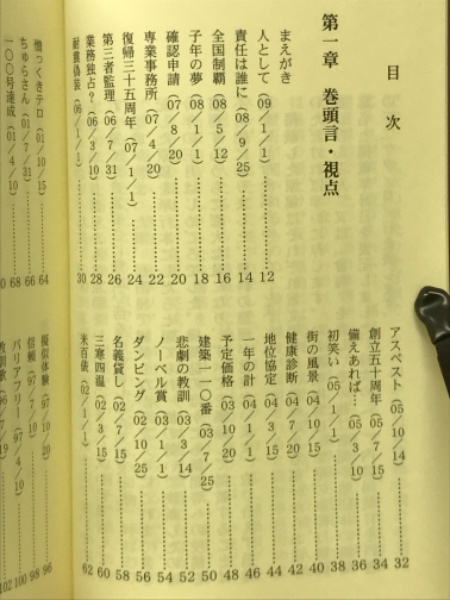 目次
まえがき
第一章 巻頭言・視点
人として(09/1/1)……12
責任は誰に(08/9/25)……14
全国制覇(08/5/12)……16
子年の夢(08/1/1)……18
確認申請(07/8/20)……20
専業事務所(07/4/20)……22
復帰三十五周年(07/1/1)……24
第三者監理(06/7/31)……26
業務独占?(06/3/10)……28
耐震偽装(06/1/1)……30
アスベスト(05/10/14)……32
創立五十周年(05/7/15)……34
備えあれば…(05/3/10)……36
初笑い(05/1/1)……38
街の風景(04/10/15)……40
健康診断(04/7/20)……42
地位協定(04/3/15)……44
一年の計(04/1/1)……46
予定価格(03/10/20)……48
建築一一〇番(03/7/25)……50
悲劇の教訓(03/3/14)……52
ノーベル賞(03/1/1)……54
ダンピング(02/10/25)……56
名義貸し(02/7/15)……58
三寒四温(02/3/15)……60
米百俵(02/1/1)……62
憎っくきテロ(01/10/15)……64
ちゅらさん(01/7/31)……66
一〇〇号達成(01/4/10)……68
擬似体験(97/10/20)……96
信頼(97/7/10)……98
バリアフリー(97/4/10)……100
102